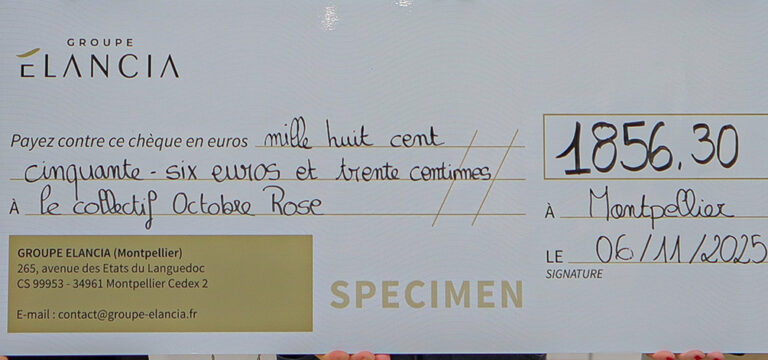 GROUPE
ÉLANCIA
Payez contre ce chèque en euros mille huit cent
cinquante-six euros et trente centimes
1856.30
À le collectif Octobre Rose
À Montpellier
LE 06/11/2025
SIGNATURE
GROUPE ELANCIA (Montpellier)
265, avenue des Etats du Languedoc
CS 99953 - 34961 Montpellier Cedex 2
E-mail : contact@groupe-elancia.fr
SPECIMEN